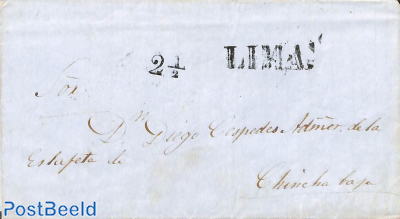 2½ LIMA.
Sōr.
Dn Diego Cespedes Admōr. de la
Estafeta de
Chincha baja
PostBeeld